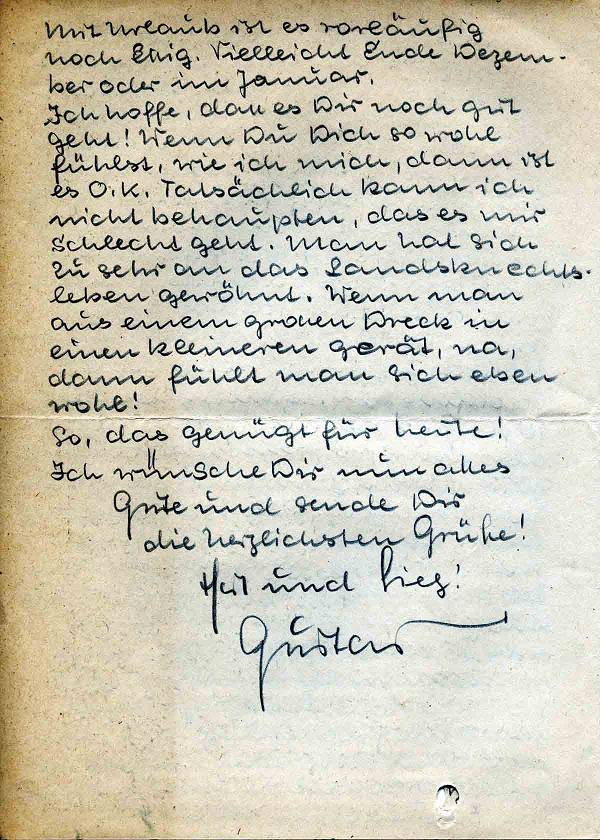 Mit Urlaub ist es vorläufig
noch Essig. Vielleicht Ende Dezem-
ber oder im Januar.
Ich hoffe, daß es Dir noch gut
geht! Wenn Du Dich so wohl
fühlst, wie ich mich, dann ist
es O.K. Tatsächlich kann ich
nicht behaupten, das es mir
schlecht geht. Man hat sich
zu sehr an das Landsknechts-
leben gewöhnt. Wenn man
aus einem großen Dreck in
einen kleineren gerät, na,
dann fühlt man sich eben
wohl!
So, das genügt für heute!
Ich wünsche Dir nun alles
Gute und sende Dir
die herzlichsten Grüße!
Heil und Sieg!
Gustav